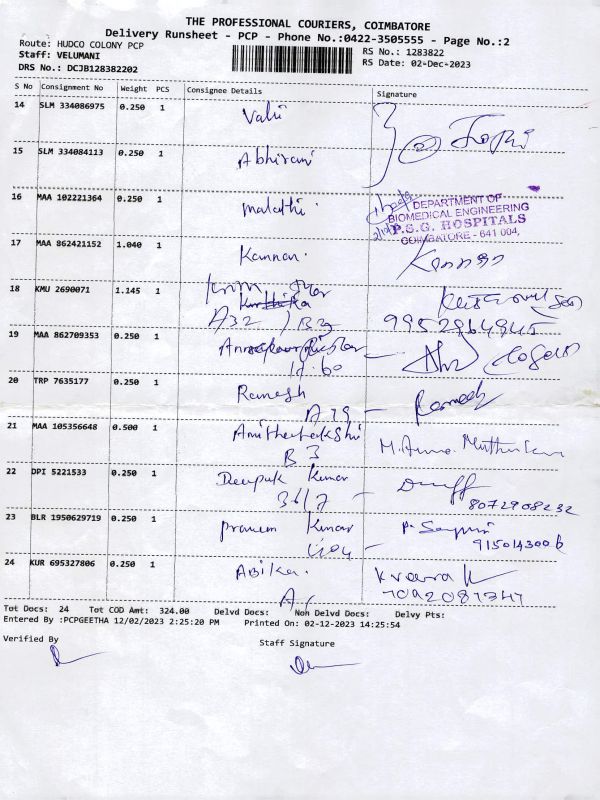 THE PROFESSIONAL COURIERS, COIMBATORE
Delivery Runsheet - PCP - Phone No.:0422-3505555 - Page No.:2
Route: HUDCO COLONY PCP RS No.: 1283822
Staff: VELUMANI RS Date: 02-Dec-2023
DRS No.: DCJB128382202
S No Consignment No Weight PCS Consignee Details Signature
14 SLM 334086975 0.250 1 Valli
15 SLM 334084113 0.250 1 Abhirami
16 MAA 102221364 0.250 1 Malathi
DEPARTMENT OF
BIOMEDICAL ENGINEERING
P.S.G. HOSPITALS
COIMBATORE - 641 004.
17 MAA 862421152 1.040 1 Kannan
18 KMU 2690071 1.145 1
A32 / B3 9952964945
19 MAA 862709353 0.250 1
20 TRP 7635177 0.250 1 Ramesh Ramesh
A 79
21 MAA 105356648 0.500 1
B 3
22 DPI 5221533 0.250 1 Deepak Kumar
36/7 8072908232
23 BLR 1950629719 0.250 1 Praveen Kumar
24 KUR 695327806 0.250 1 Abika
Tot Docs: 24 Tot COD Amt: 324.00 Delvd Docs: Non Delvd Docs: Delvy Pts:
Entered By :PCPGEETHA 12/02/2023 2:25:20 PM Printed On: 02-12-2023 14:25:54
Verified By Staff Signature